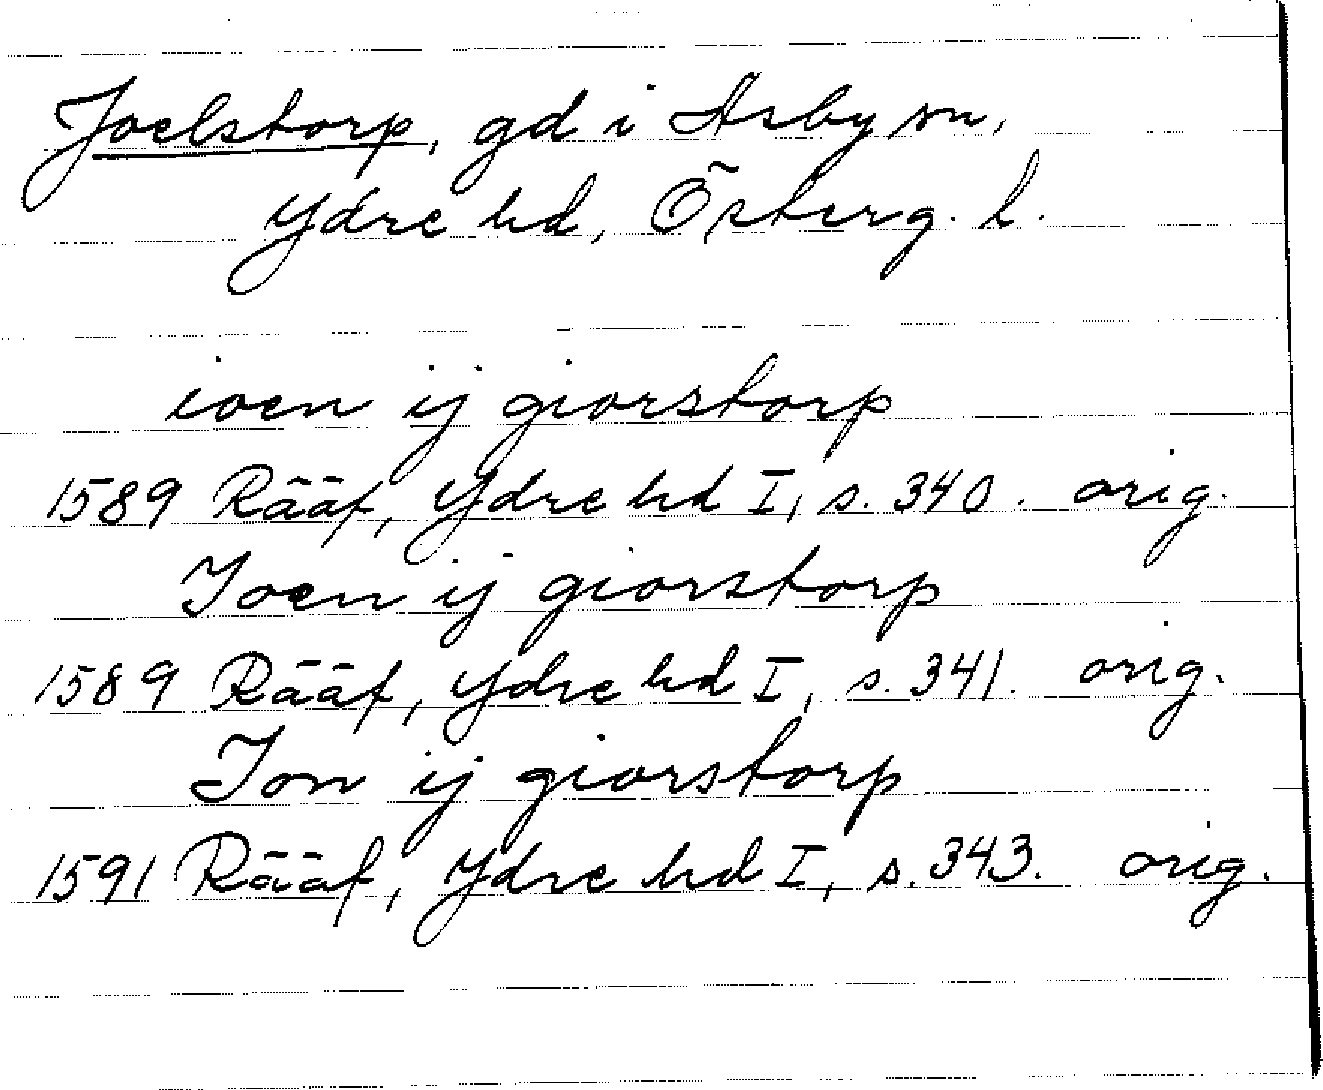 Joelstorp, gd i Asby sn,
Ydre hd, Österg. l.
ioen ij giorstorp
1589 Rääf, Ydre hd I, s. 340. orig.
Joen ij giorstorp
1589 Rääf, Ydre hd I, s. 341. orig.
Jon ij giorstorp
1591 Rääf, Ydre hd I, s. 343. orig.